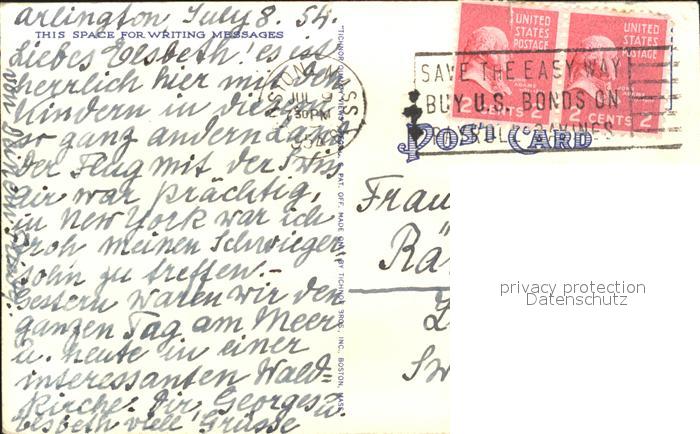 Arlington, July 8. 54.
THIS SPACE FOR WRITING MESSAGES
Liebes Elsbeth! es ist
herrlich hier mit den
Kindern in diesem
so ganz andern Land.
Der Flug mit der Swiss
air war prächtig,
in New York war ich
froh meinen Schwieger
sohn zu treffen.-
Gestern waren wir den
ganzen Tag am Meer
u. heute in einer
interessanten Wald=
kirche. Dir, Georges u.
Elsbeth viele Grüsse
von Deinem
"TICHNOR QUALITY VIEWS" REG. U. S. PAT. OFF. MADE ONLY BY TICHNOR BROS., INC., BOSTON, MASS.
JUL 9
7 30 PM
1954
MASS.
UNITED
STATES
POSTAGE
JOHN
ADAMS
2 CENTS 2
UNITED
STATES
POSTAGE
JOHN
ADAMS
2 CENTS 2
SAVE THE EASY WAY
BUY U.S. BONDS ON
PAYROLL SAVINGS
POST CARD
Frau
privacy protection
Datenschutz